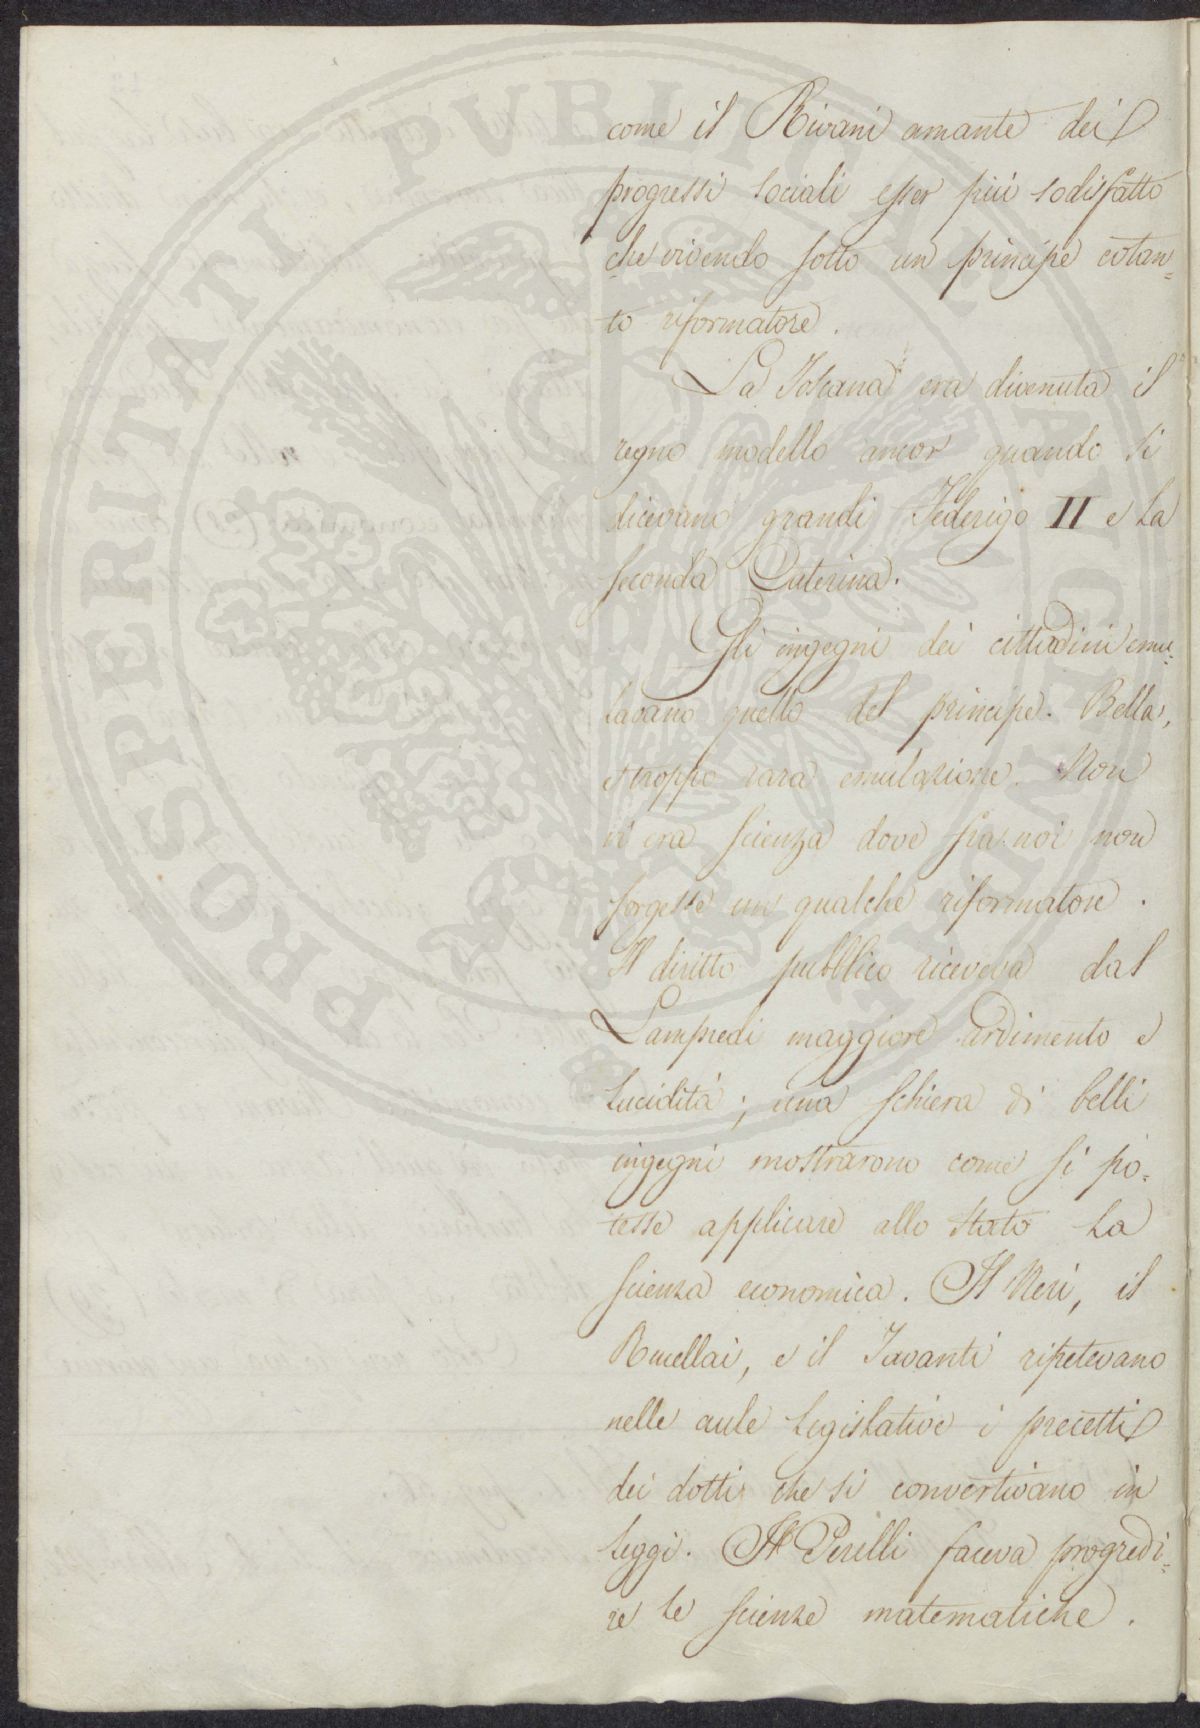 come il Rivani amante dei
progressi sociali esser più sodisfatto
che vivendo sotto un principe cotan=
to riformatore.
La Toscana era divenuta il
regno modello ancor quando si
dicevano grandi Federigo II e la
seconda Caterina.
Gli ingegni dei cittadini emu=
lavano quello del principe. Bella,
e troppo rara emulazione. Non
vi era scienza dove fra noi non
sorgesse un qualche riformatore.
Il diritto pubblico riceveva dal
Lampredi maggiore ardimento e
lucidità; una schiera di belli
ingegni mostrarono come si po=
tesse applicare allo stato la
scienza economica. Il Neri, il
Rucellai, e il Tavanti ripetevano
nelle aule legislative i precetti
dei dotti che si convertivano in
leggi. Il Perelli faceva progredi=
re le scienze matematiche.
PROSPERITATI PUBLICAE AUGENDAE